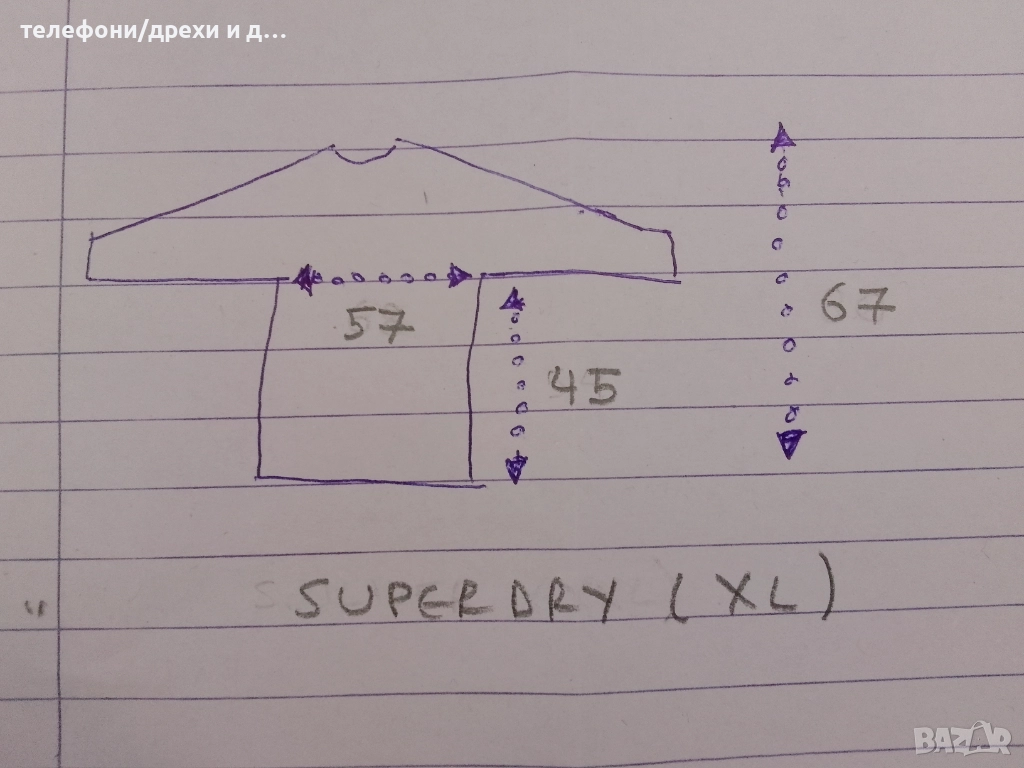 телефони/дрехи и д...
57
67
45
" SUPERDRY (XL)
BAZAR